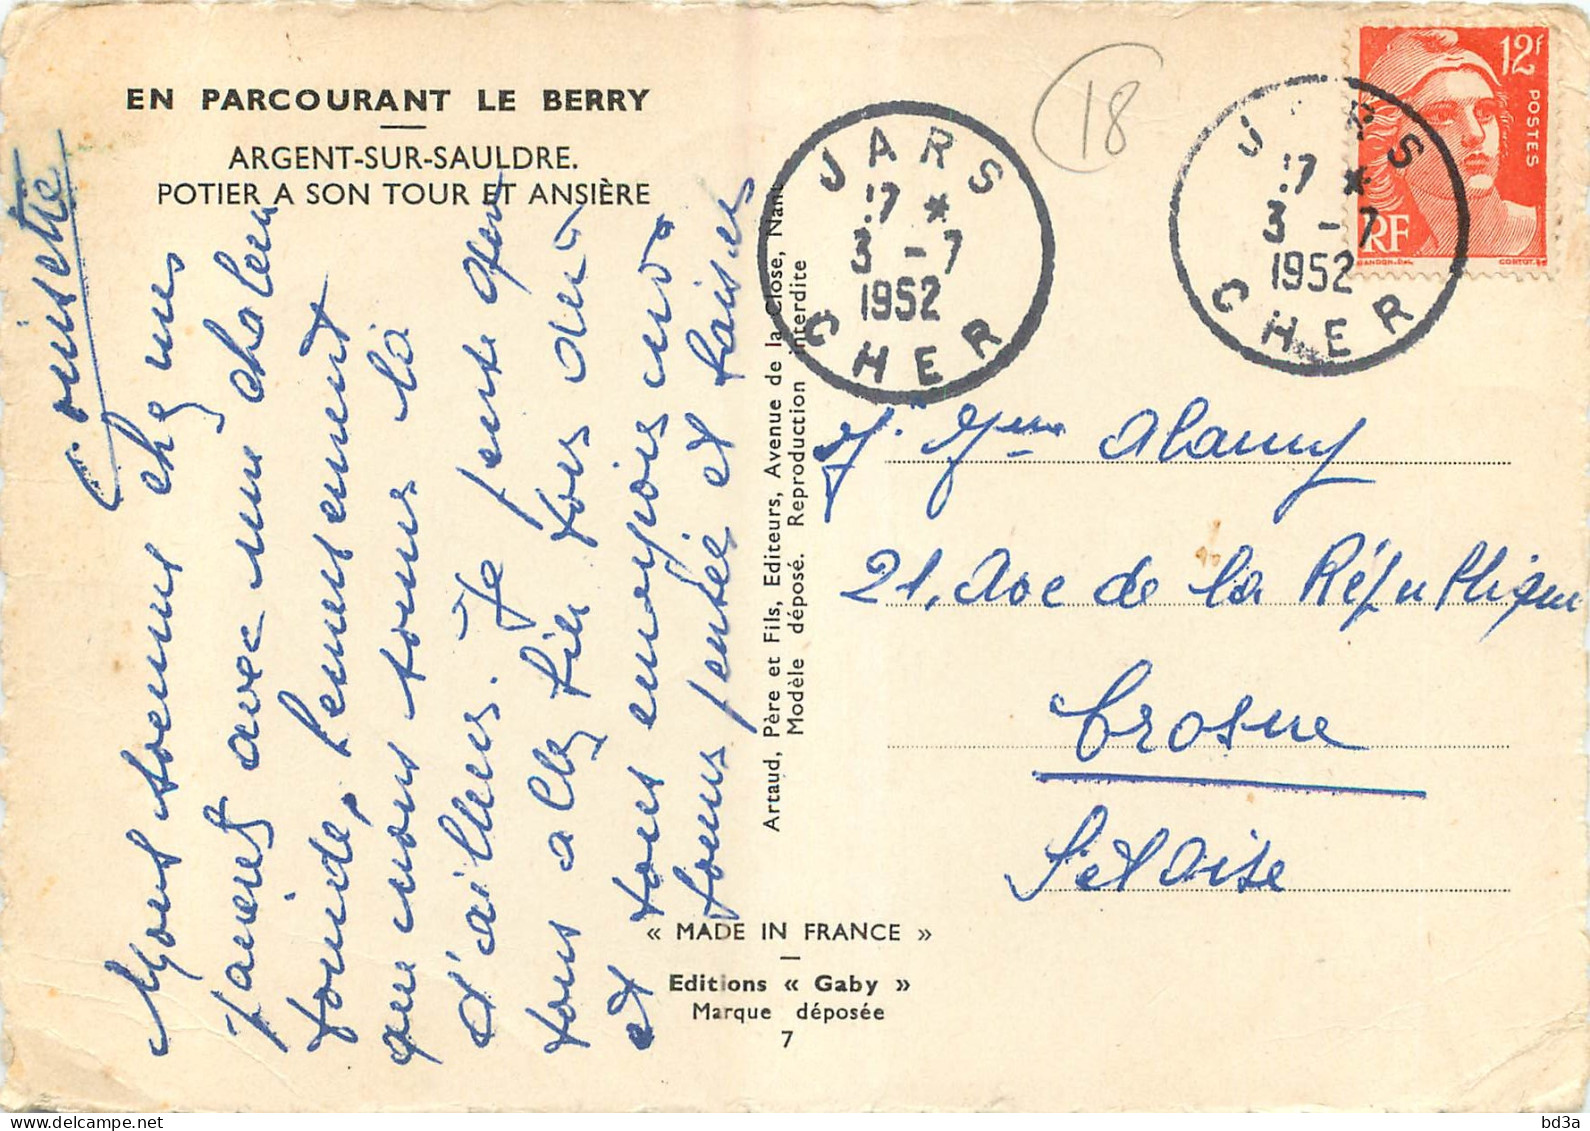 EN PARCOURANT LE BERRY
ARGENT-SUR-SAULDRE.
POTIER A SON TOUR ET ANSIÈRE
Nous sommes chez mes
avec une chaleur
torride, heureusement
que nous sommes là
d'ailleurs. Je pense que
vous allez bien tous deux
et vous envoyons nos
bonne santée et baisers
Artaud, Père et Fils, Editeurs, Avenue de la Close, Nant
Modèle déposé. Reproduction interdite
« MADE IN FRANCE »
Editions « Gaby »
Marque déposée
7
18
JARS
17 *
3 - 7
1952
CHER
JARS
17 *
3 - 7
1952
CHER
12F
POSTES
RF
GANDON.DEL
CORTOT.SC
Mme
21, Ave de la République
Crosne
S et Oise
bd3a